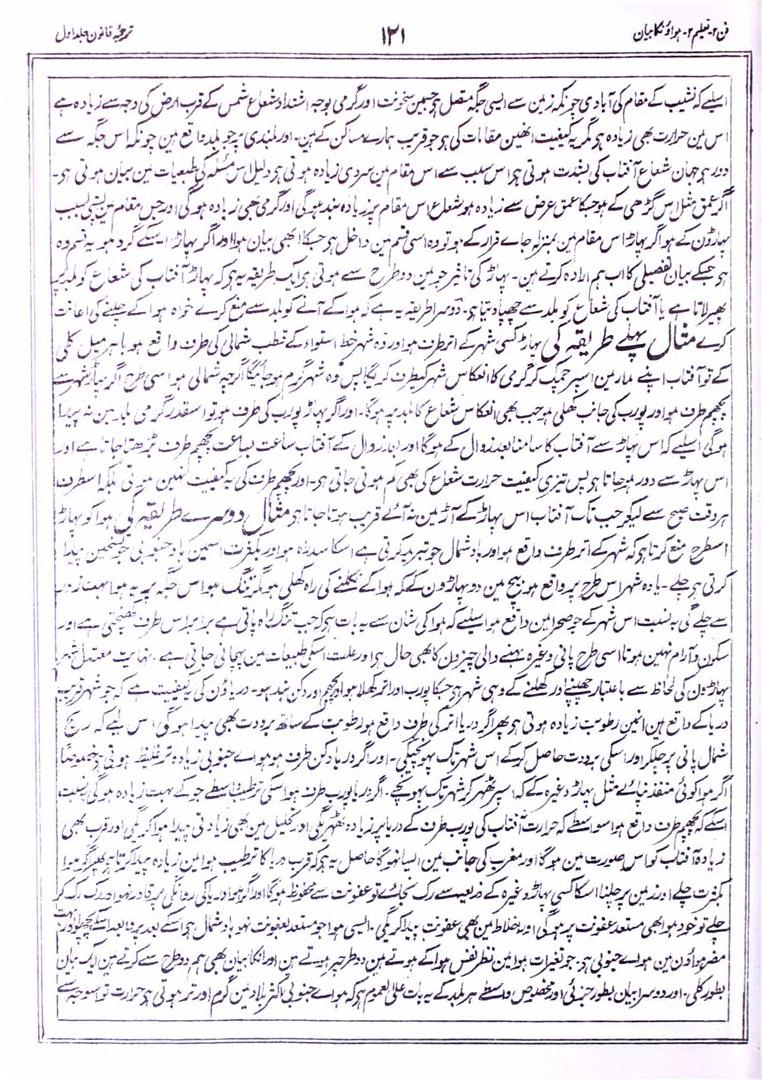 فن ۲ - تعلیم ۲ - ہواؤنکا بیان ۱۲۱ ترجمۂ قانون جلد اول
اسلیے کہ نشیب کے مقام کی آبادی چونکہ زمین سے ایسی جگہ متصل ہی جسمین سخونت اور گرمی بوجہ اشتداد شعاع شمس کے قرب ارض کی وجہ سے زیادہ ہے
اس مین حرارت بھی زیادہ ہوگی مگر یہ کیفیت انھین مقامات کی ہی جو قریب ہمارے مساکن کے ہین - اور بلندی پر جو بلد واقع ہین چونکہ اس جگہ سے
دور ہی جہان شعاع آفتاب کی بشدت ہوتی ہی اس سبب سے اس مقام مین سردی زیادہ ہوتی ہی دلیل اس مسئلہ کی طبعیات مین بیان ہوتی ہی -
اگر عمق مثل اس گڑھی کے ہو جسکا عمق عرض سے زیادہ ہو شعاع اس مقام پر زیادہ بند ہوگی اور گرمی بھی زیادہ ہوگی اور جس مقام مین پستی بسبب
پہاڑون کے ہو اگر پہاڑ اس مقام مین بمنزلہ جاے قرار کے ہو تو وہ اسی قسم مین داخل ہی جسکا ابھی بیان ہوا اور اگر پہاڑ اسکے گرد ہو یہ قسم وہ
ہی جسکے بیان تفصیلی کا اب ہم ارادہ کرتے ہین - پہاڑ کی تاثیر جو مین دو طرح سے ہوتی ہی ایک طریقہ یہ ہی کہ پہاڑ آفتاب کی شعاع کو بلد پر
پھیر لاتا ہے یا آفتاب کی شعاع کو بلد سے چھپا دیتا ہی - دوسرا طریقہ یہ ہے کہ ہوا کے آنے کو بلد سے منع کرے خواہ ہوا کے چلنے کی اعانت
کرے مثال پہلے طریقہ کی پہاڑ کسی شہر کے اتر طرف ہو اور وہ شہر خط استواء کے قطب شمالی کی طرف واقع ہو باہر میل کلی
کے تو آفتاب اپنے مدار مین اسپر چمک کر گرمی کا انعکاس شہر کیطرف کریگا پس وہ شہر گرم ہو جائیگا اگرچہ شمالی ہو اسی طرح اگر پہاڑ شہر سے
پچھم طرف ہو اور پورب کی جانب کھلی ہو جب بھی انعکاس شعاع کا بلد پر ہوگا - اور اگر پہاڑ پورب کی طرف ہو تو اسقدر گرمی بلد مین نہ پیدا
ہوگی اسلیے کہ اس پہاڑ سے آفتاب کا سامنا بعد زوال کے ہوگا اور بعد زوال کے آفتاب ساعت بساعت پچھم طرف بڑھتا جاتا ہے اور
اس پہاڑ سے دور ہوجاتا ہی پس تیزی کیفیت حرارت شعاع کی بھی کم ہوتی جاتی ہی - اور پچھم طرف کی یہ کیفیت نہین ہوتی بلکہ اسطرف
ہر وقت صبح سے لیکر جب تک آفتاب اس پہاڑ کے آڑ مین نہ آئے قریب ہوتا جاتا ہی مثال دوسرے طریقہ کی ہوا کو پہاڑ
اسطرح منع کرتا ہی کہ شہر کے اتر طرف واقع ہو اور باد شمال جو تبرید کرتی ہے اسکا سد راہ ہو اور بکثرت اسمین باد جنوبی جو تسخین پیدا
کرتی ہی چلے - یا وہ شہر اس طرح پر واقع ہو بیچ مین دو پہاڑون کے کہ ہوا کے نکلنے کی راہ کھلی ہو مگر تنگ ہو اس جگہ پر یہ ہوا بہت زور
سے چلے گی بہ نسبت اس شہر کے جو صحرا مین واقع ہو اسلیے کہ ہوا کی شان سے یہ بات ہی کہ جب تنگ راہ پاتی ہے برابر اس طرف کھینچتی ہے اور
سکون و آرام نہین ہوتا اسی طرح پانی وغیرہ بہنے والی چیزون کا بھی حال ہی اور علت اسکی طبعیات مین پہچانی جاتی ہے - نہایت معتدل شہر
پہاڑون کی لحاظ سے باعتبار چھپنے اور کھلنے کے وہی شہر ہی جسکا پورب اور اتر کھلا ہو اور پچھم اور دکن بند ہو - دریاؤن کی یہ کیفیت ہے کہ جو شہر قریب
دریا کے واقع ہین انمین رطوبت زیادہ ہوتی ہی پھر اگر دریا اتر کی طرف واقع ہو رطوبت کے ساتھ برودت بھی پیدا ہوگی اس لیے کہ ریح
شمال پانی پر چلکر اور اسکی برودت حاصل کرکے اس شہر تک پہونچیگی - اور اگر دریا دکن طرف ہو ہواے جنوبی زیادہ تر غلیظ ہوتی ہی خصوصاً
اگر ہوا کوئی منفذ نپاے مثل پہاڑ وغیرہ کے کہ اسپر ٹھہر کر شہر تک پہونچے - اگر دریا پورب طرف ہو اسکی ترطیب واسطے جو کے بہت زیادہ ہوگی بہ نسبت
اسکے کہ پچھم طرف واقع ہو اسواسطے کہ حرارت آفتاب کی پورب طرف کے دریا پر زیادہ ٹھہریگی اور تحلیل مین بھی زیادتی پیدا ہوا کریگی اور قرب بھی
زیادہ آفتاب کو اس صورت مین ہوگا اور مغرب کی جانب مین ایسا نہوگا حاصل یہ ہی کہ قرب دریا کا ترطیب ہوا مین زیادہ پیدا کرتا ہی پھر اگر ہوا
بکثرت چلے اور زمین پر چلنا اسکا کسی پہاڑ وغیرہ کے ذریعہ سے رک نجاے تو عفونت سے محفوظ ہوگا اور اگر ہوا دریا کی روانگی پر قادر نہو اور رک رک کر
چلے تو خود ہوا بھی مستعد عفونت پر ہوگی اور اخلاط مین بھی عفونت پیدا کریگی - ایسی ہوا جو مستعد بعفونت نہو باد شمال ہی اسکے بعد پروا بعد اسکے پچھوا اور بہت
مضر ہواؤن مین ہواے جنوبی ہی - جو تغیرات ہوا مین نظر نفس ہوا کے ہوتے ہین دو طرح پر ہوتے ہین اور انکا بیان بھی ہم دو طرح سے کرتے ہین ایک بیان
بطور کلی - اور دوسرا بیان بطور جزئی اور مخصوص واسطے ہر بلد کے یہ بات علی العموم ہی کہ ہواے جنوبی اکثر بلاد مین گرم اور تر ہوتی ہی حرارت تو اسوجہ سے